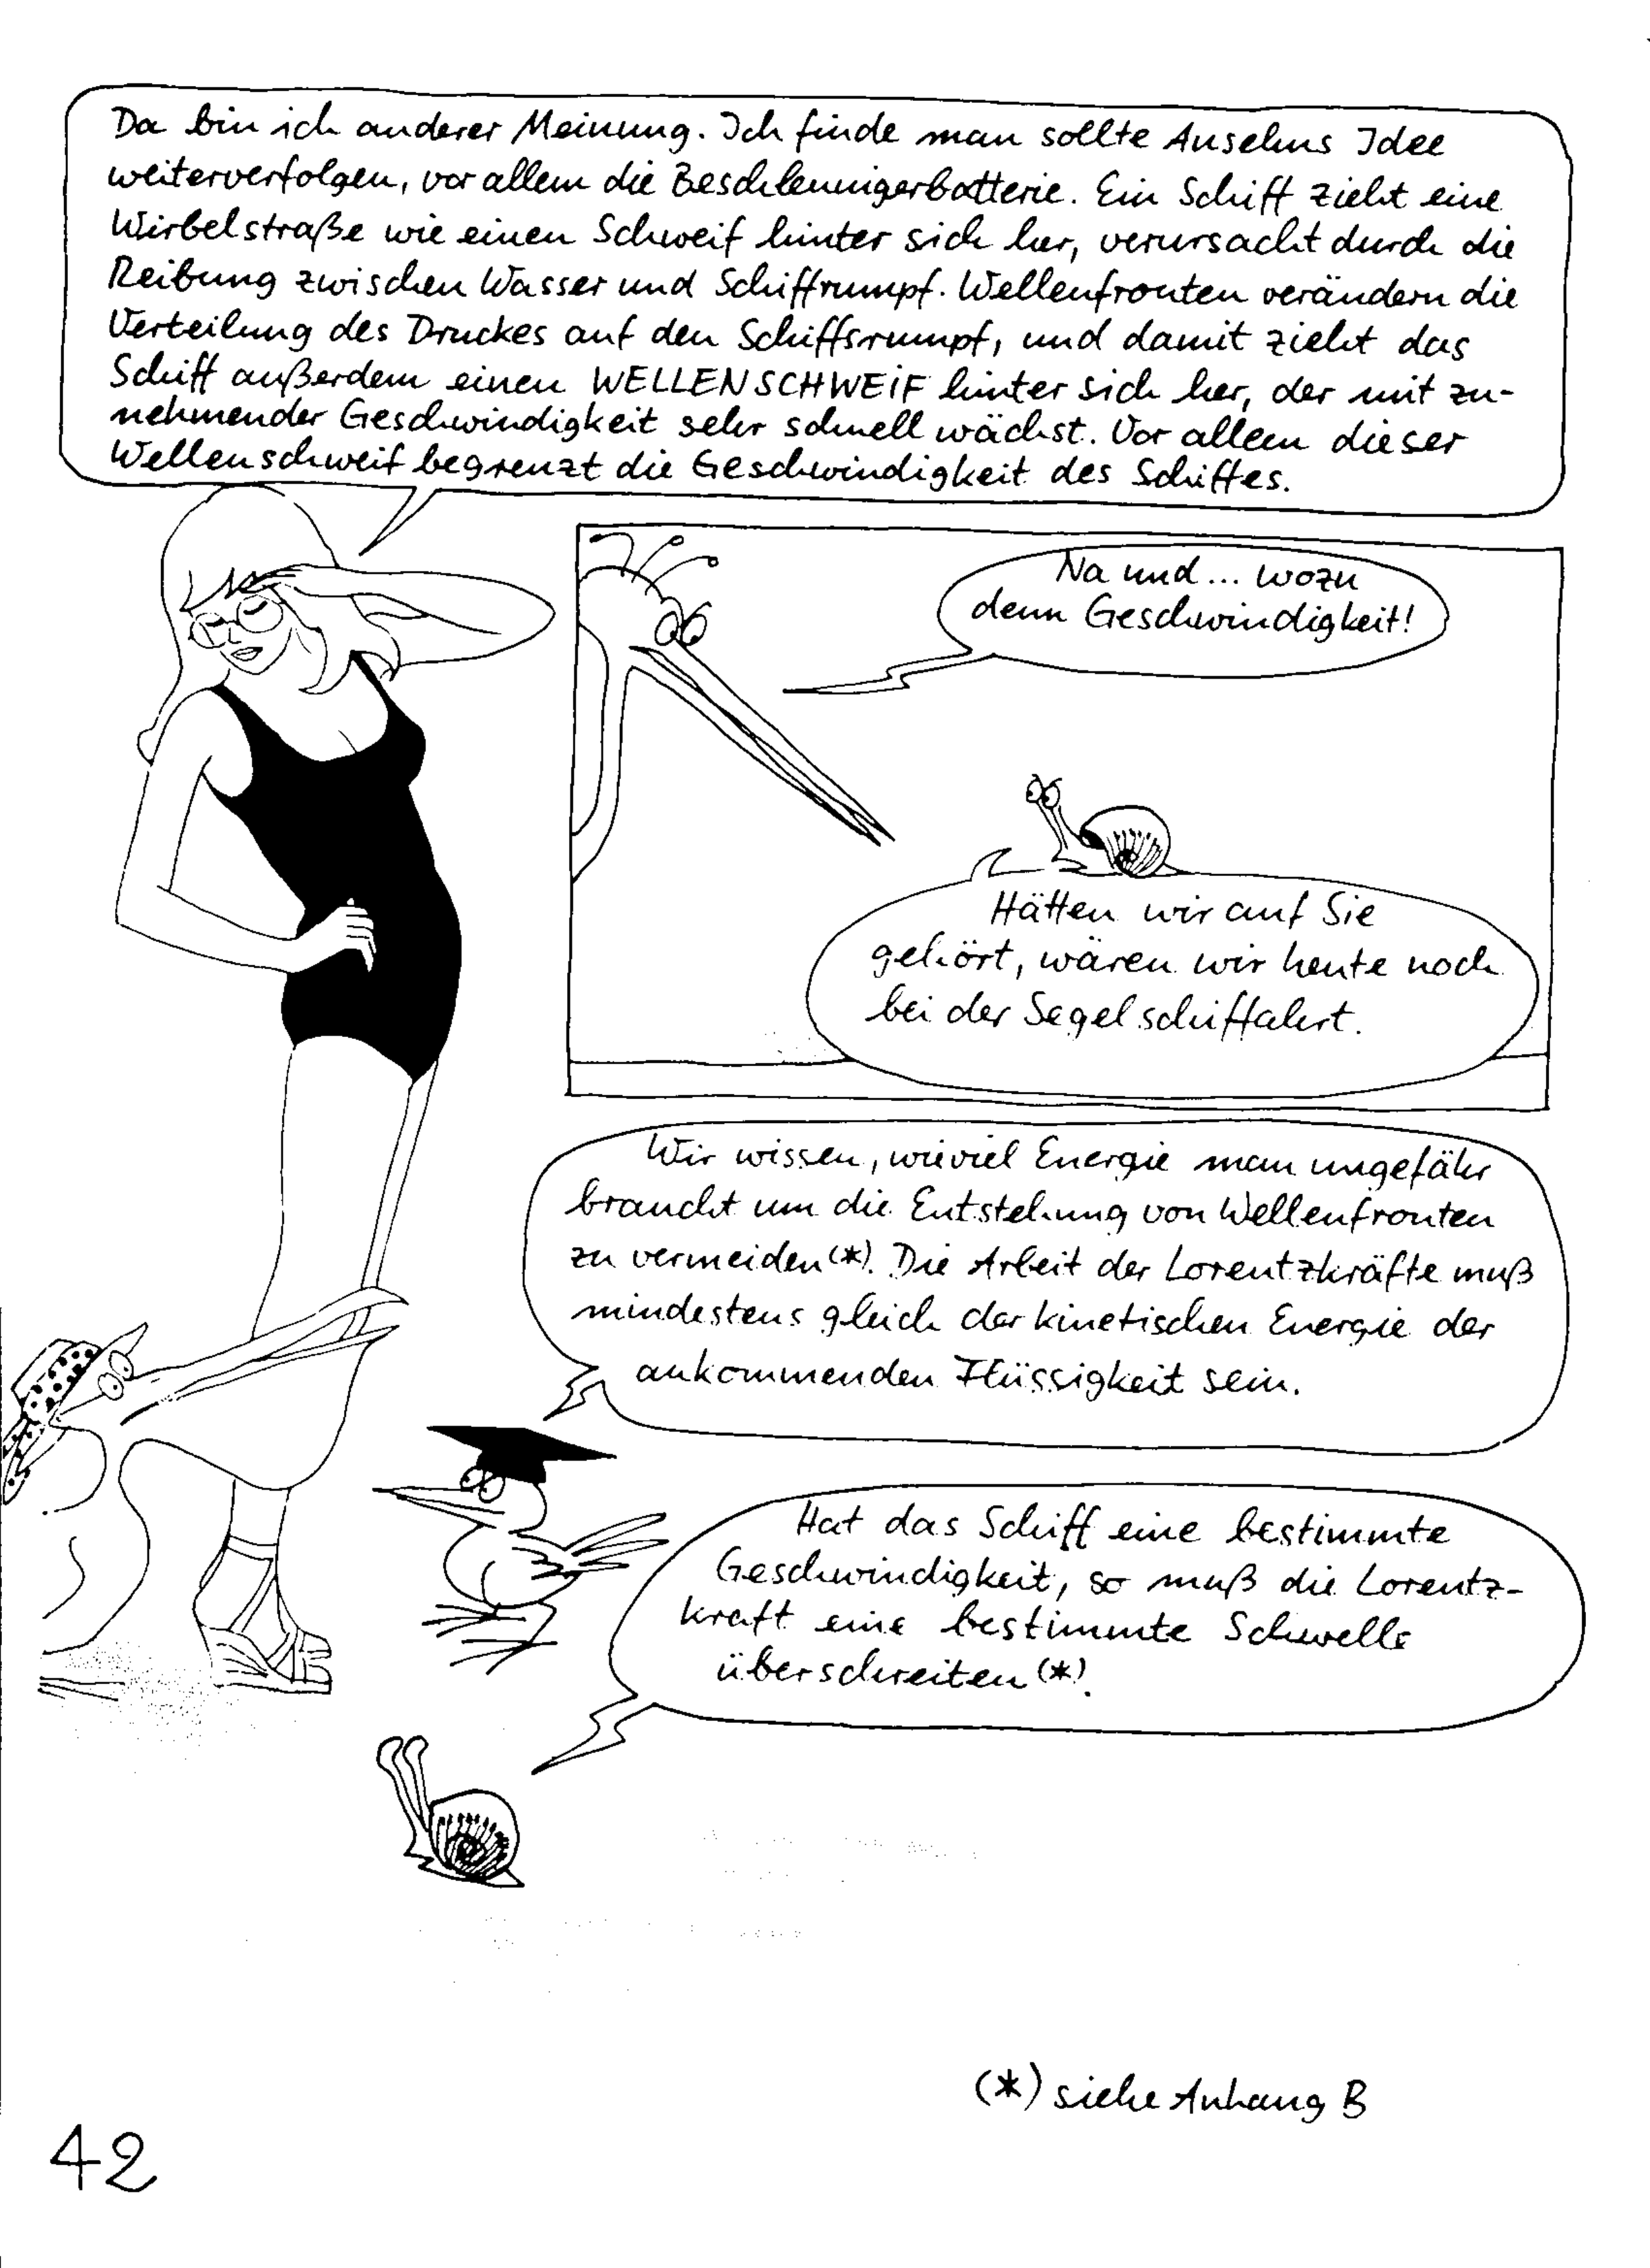 Da bin ich anderer Meinung. Ich finde man sollte Anselms Idee
weiterverfolgen, vor allem die Beschleunigerbatterie. Ein Schiff zieht eine
Wirbelstraße wie einen Schweif hinter sich her, verursacht durch die
Reibung zwischen Wasser und Schiffrumpf. Wellenfronten verändern die
Verteilung des Druckes auf den Schiffsrumpf, und damit zieht das
Schiff außerdem einen WELLENSCHWEIF hinter sich her, der mit zu-
nehmender Geschwindigkeit sehr schnell wächst. Vor allem dieser
Wellenschweif begrenzt die Geschwindigkeit des Schiffes.
Na und... wozu
denn Geschwindigkeit!
Hätten wir auf Sie
gehört, wären wir heute noch
bei der Segelschiffahrt.
Wir wissen, wieviel Energie man ungefähr
braucht um die Entstehung von Wellenfronten
zu vermeiden(*). Die Arbeit der Lorentzkräfte muß
mindestens gleich der kinetischen Energie der
ankommenden Flüssigkeit sein.
Hat das Schiff eine bestimmte
Geschwindigkeit, so muß die Lorentz-
kraft eine bestimmte Schwelle
überschreiten(*).
(*) siehe Anhang B
42